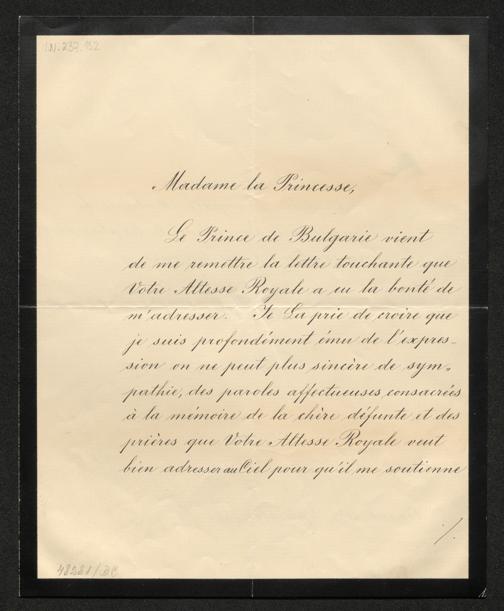 IN. 237.952
Madame la Princesse,
Le Prince de Bulgarie vient
de me remettre la lettre touchante que
Votre Altesse Royale a eu la bonté de
m'adresser. Je La prie de croire que
je suis profondément ému de l'expres-
sion on ne peut plus sincère de sym-
pathie, des paroles affectueuses consacrées
à la mémoire de la chère défunte et des
prières que Votre Altesse Royale veut
bien adresser au Ciel pour qu'il me soutienne
./.